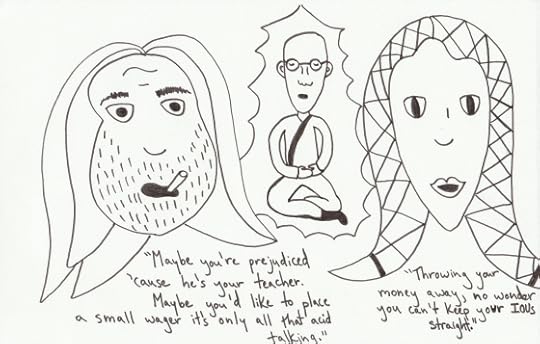 "Maybe you're prejudiced
'cause he's your teacher.
Maybe you'd like to place
a small wager it's only all that acid
talking."
"Throwing your
money away, no wonder
you can't keep your IOUs
straight."